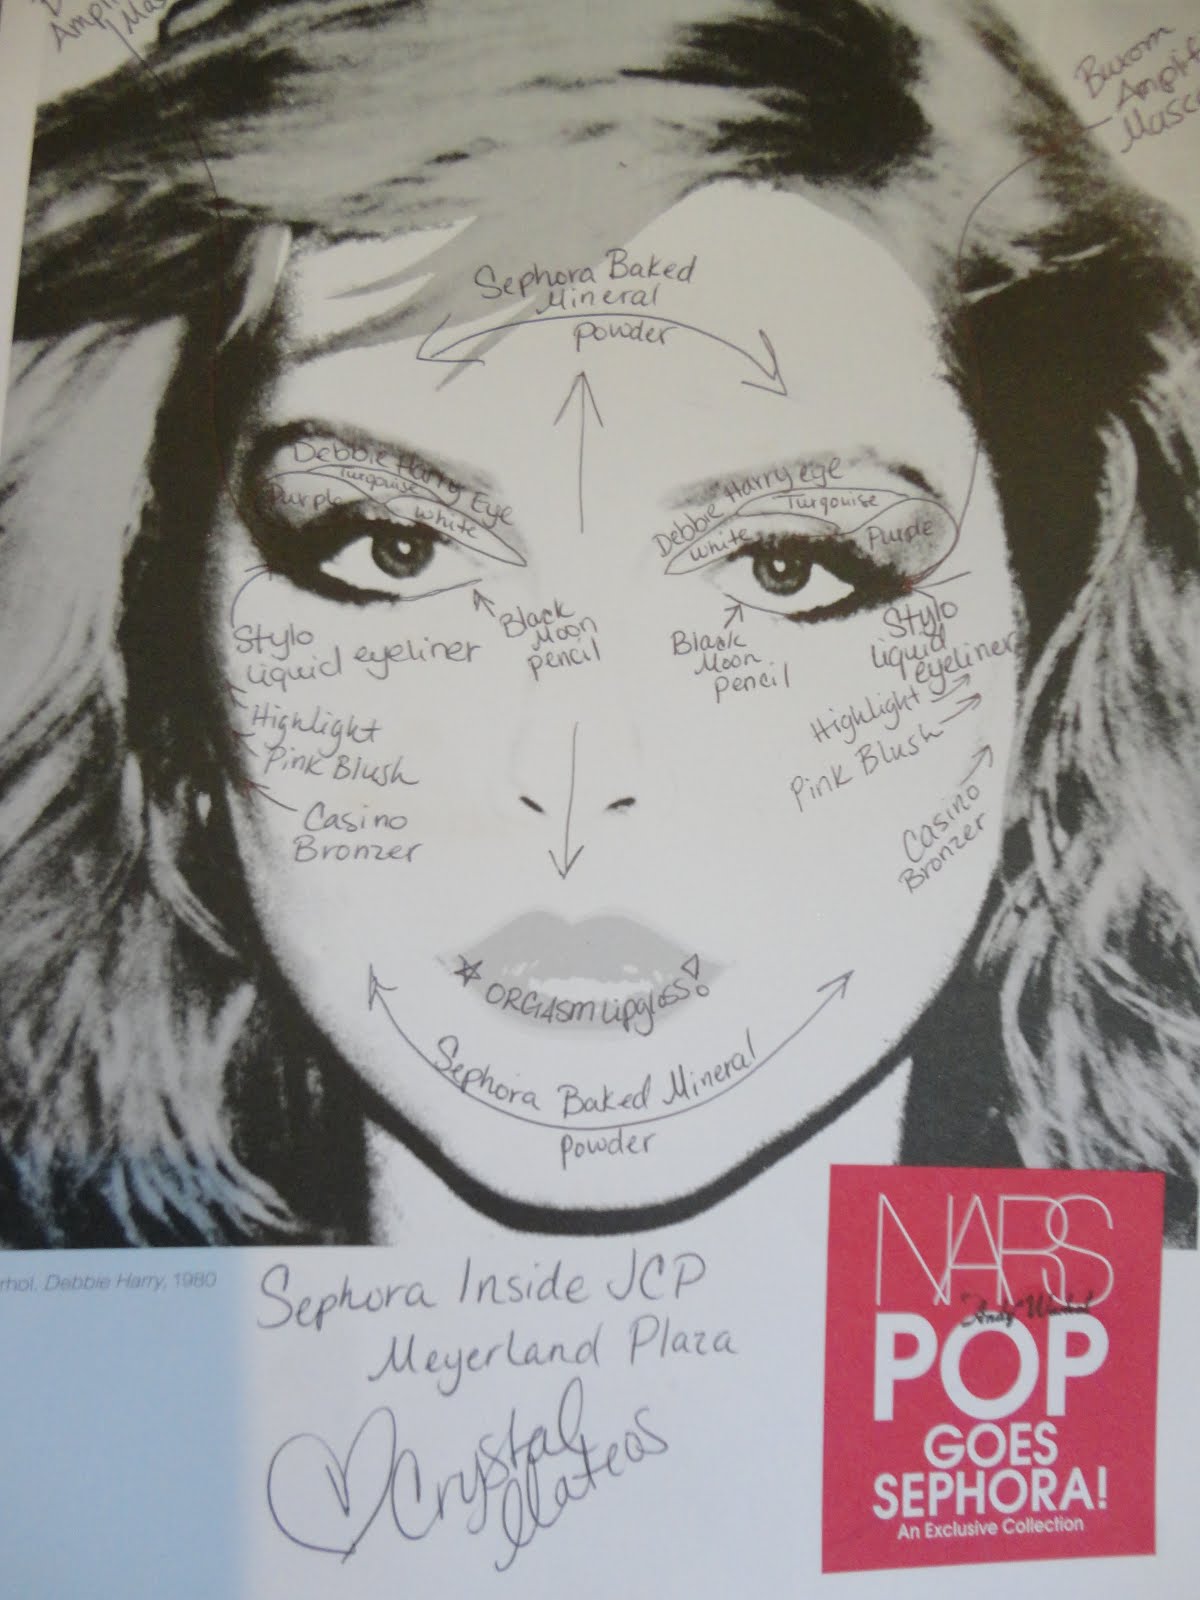 Buxom
Sephora Baked
Mineral
Powder
Debbie Harry Eye
Turqouise
Purple
White
Debbie Harry eye
Turqouise
White
Purple
Stylo
Liquid eyeliner
Black
Moon
pencil
Black
Moon
pencil
Stylo
liquid
eyeliner
Highlight
Pink Blush
Casino
Bronzer
Highlight
Pink Blush
Casino
Bronzer
ORGASM Lipgloss!
Sephora Baked Mineral
Powder
Debbie Harry, 1980
Sephora Inside JCP
Meyerland Plaza
Crystal
Mateos
NARS
Andy Warhol
POP
GOES
SEPHORA!
An Exclusive Collection